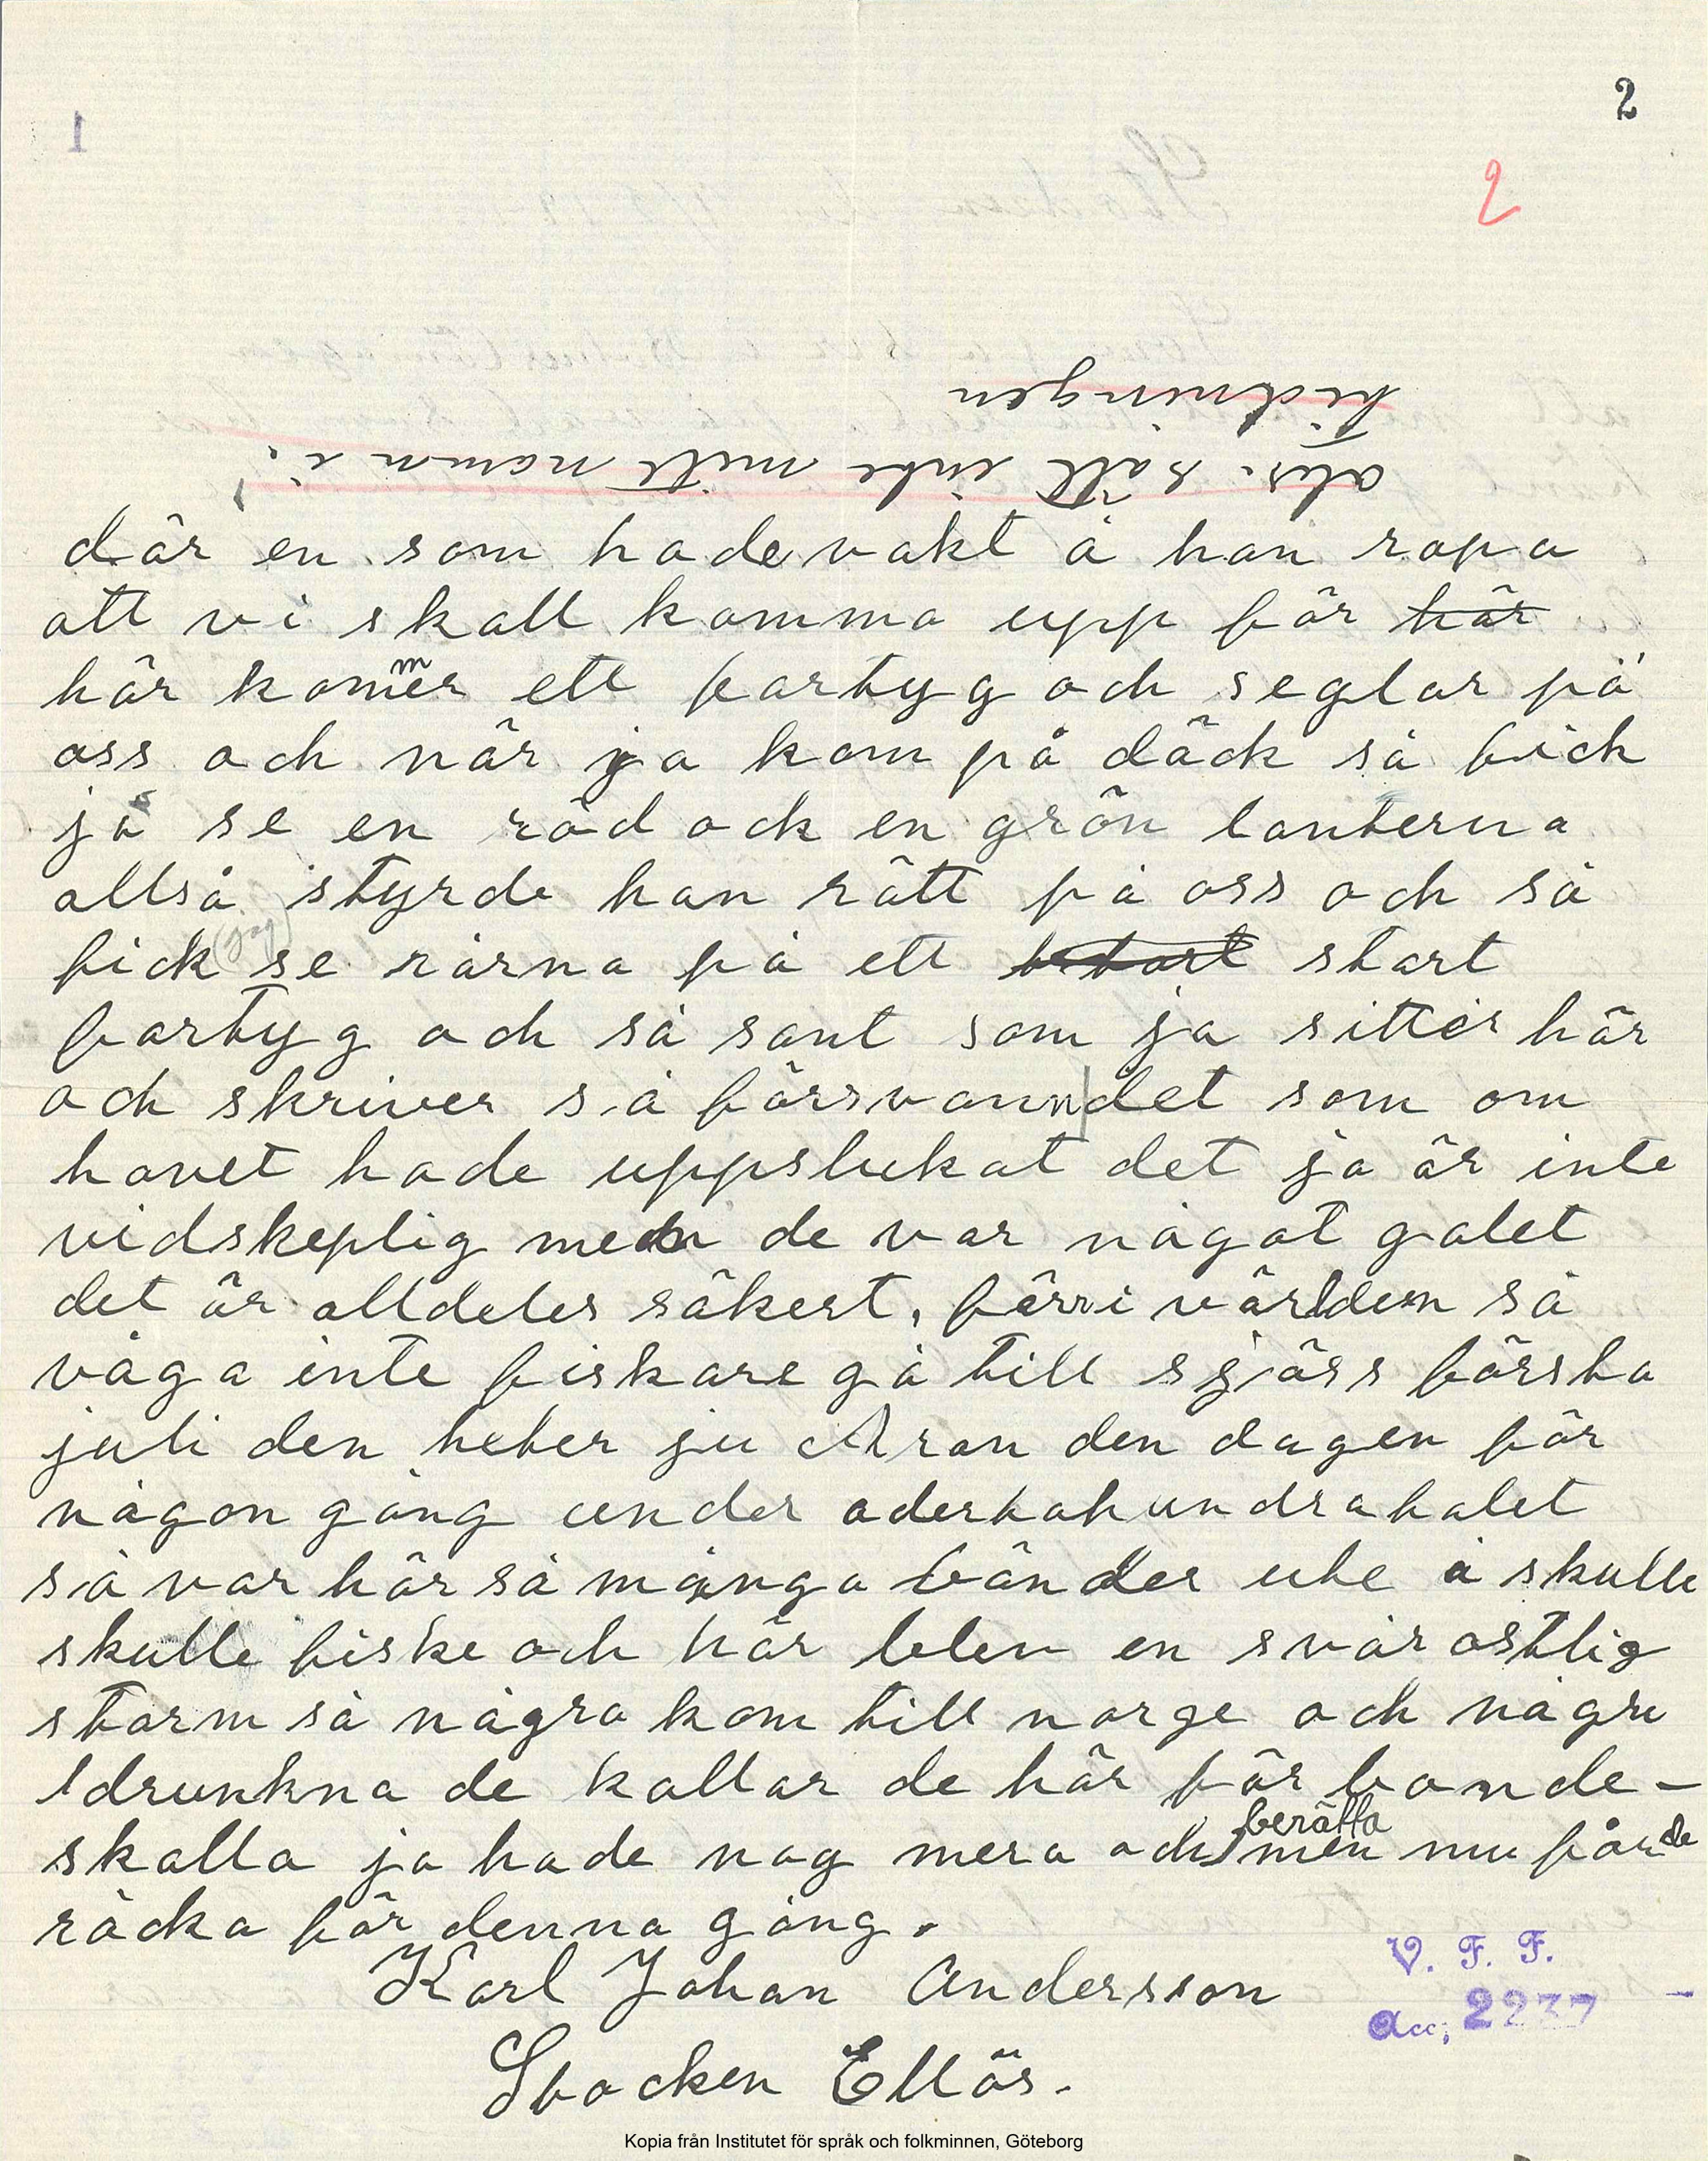 2
2
obs. sätt inte mitt namn i
tidningen
där en som hade vakt å han ropa
att vi skall komma upp för här
här kommer ett fartyg och seglar på
oss och när ja kom på däck så fick
ja se en röd ock en grön lanterna
alltså styrde han rätt på oss och så
fick (jag) se rårna på ett stort
fartyg och så sant som ja sitter här
och skriver så försvann det som om
havet hade uppslukat det ja är inte
vidskeplig men de var något galet
det är alldeles säkert, förr i världen så
våga inte fiskare gå till sjöss första
juli den heter ju Aron den dagen för
någon gång under adertohundratalet
så var här så många bönder ute å skulle
skulle fiske och här blev en svår ostlig
storm så några kom till norge och några
drunkna de kallar de här för bonde-
skalla ja hade nog mera och berätta men nu får de
räcka för denna gång.
Karl Johan Andersson
Stocken Ellös.
V. F. F.
Acc. 2237
Kopia från Institutet för språk och folkminnen, Göteborg